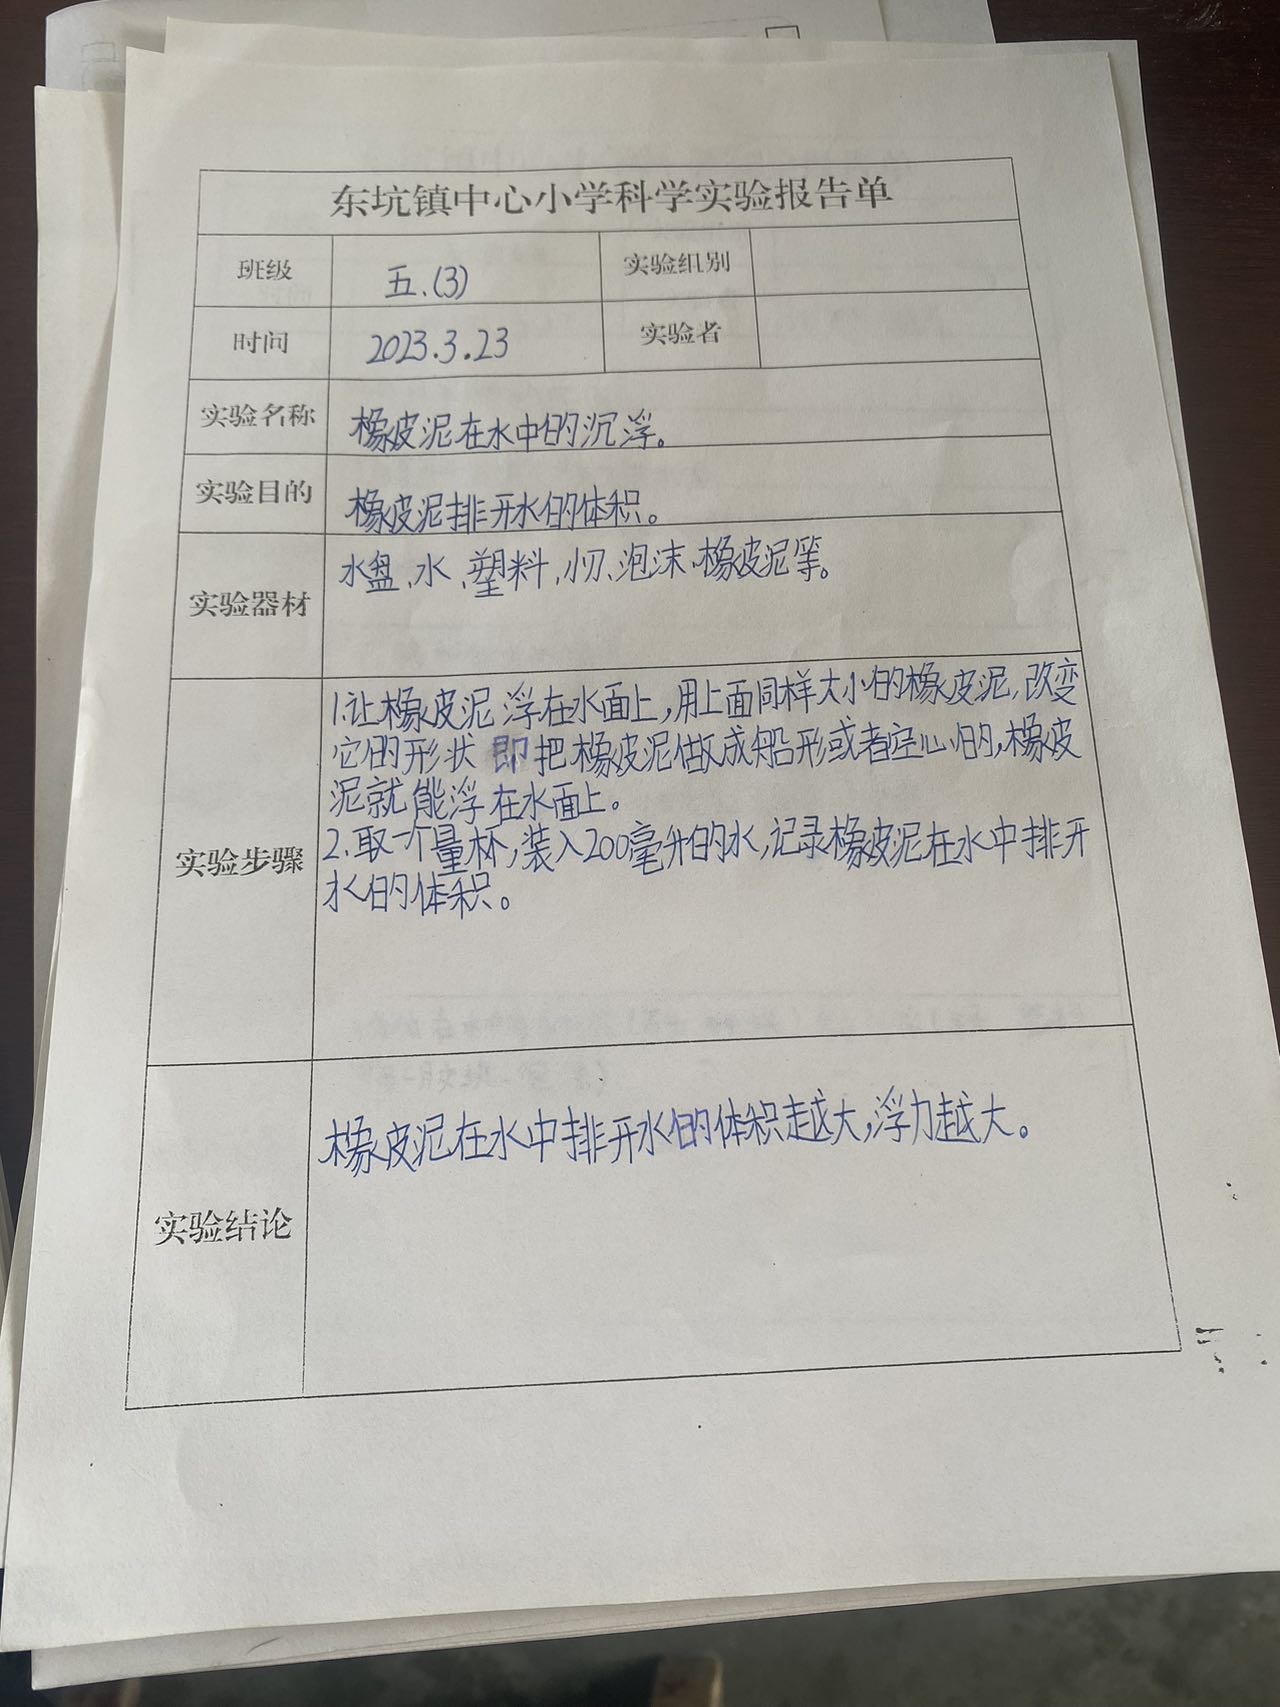 东坑镇中心小学科学实验报告单
班级 五.(3) 实验组别
时间 2023.3.23 实验者
实验名称 橡皮泥在水中的沉浮。
实验目的 橡皮泥排开水的体积。
实验器材 水盘、水、塑料、小刀、泡沫、橡皮泥等。
实验步骤
1.让橡皮泥浮在水面上,用上面同样大小的橡皮泥,改变
它的形状 即把橡皮泥做成船形或者空心的,橡皮
泥就能浮在水面上。
2.取一个量杯,装入200毫升的水,记录橡皮泥在水中排开
水的体积。
实验结论
橡皮泥在水中排开水的体积越大,浮力越大。